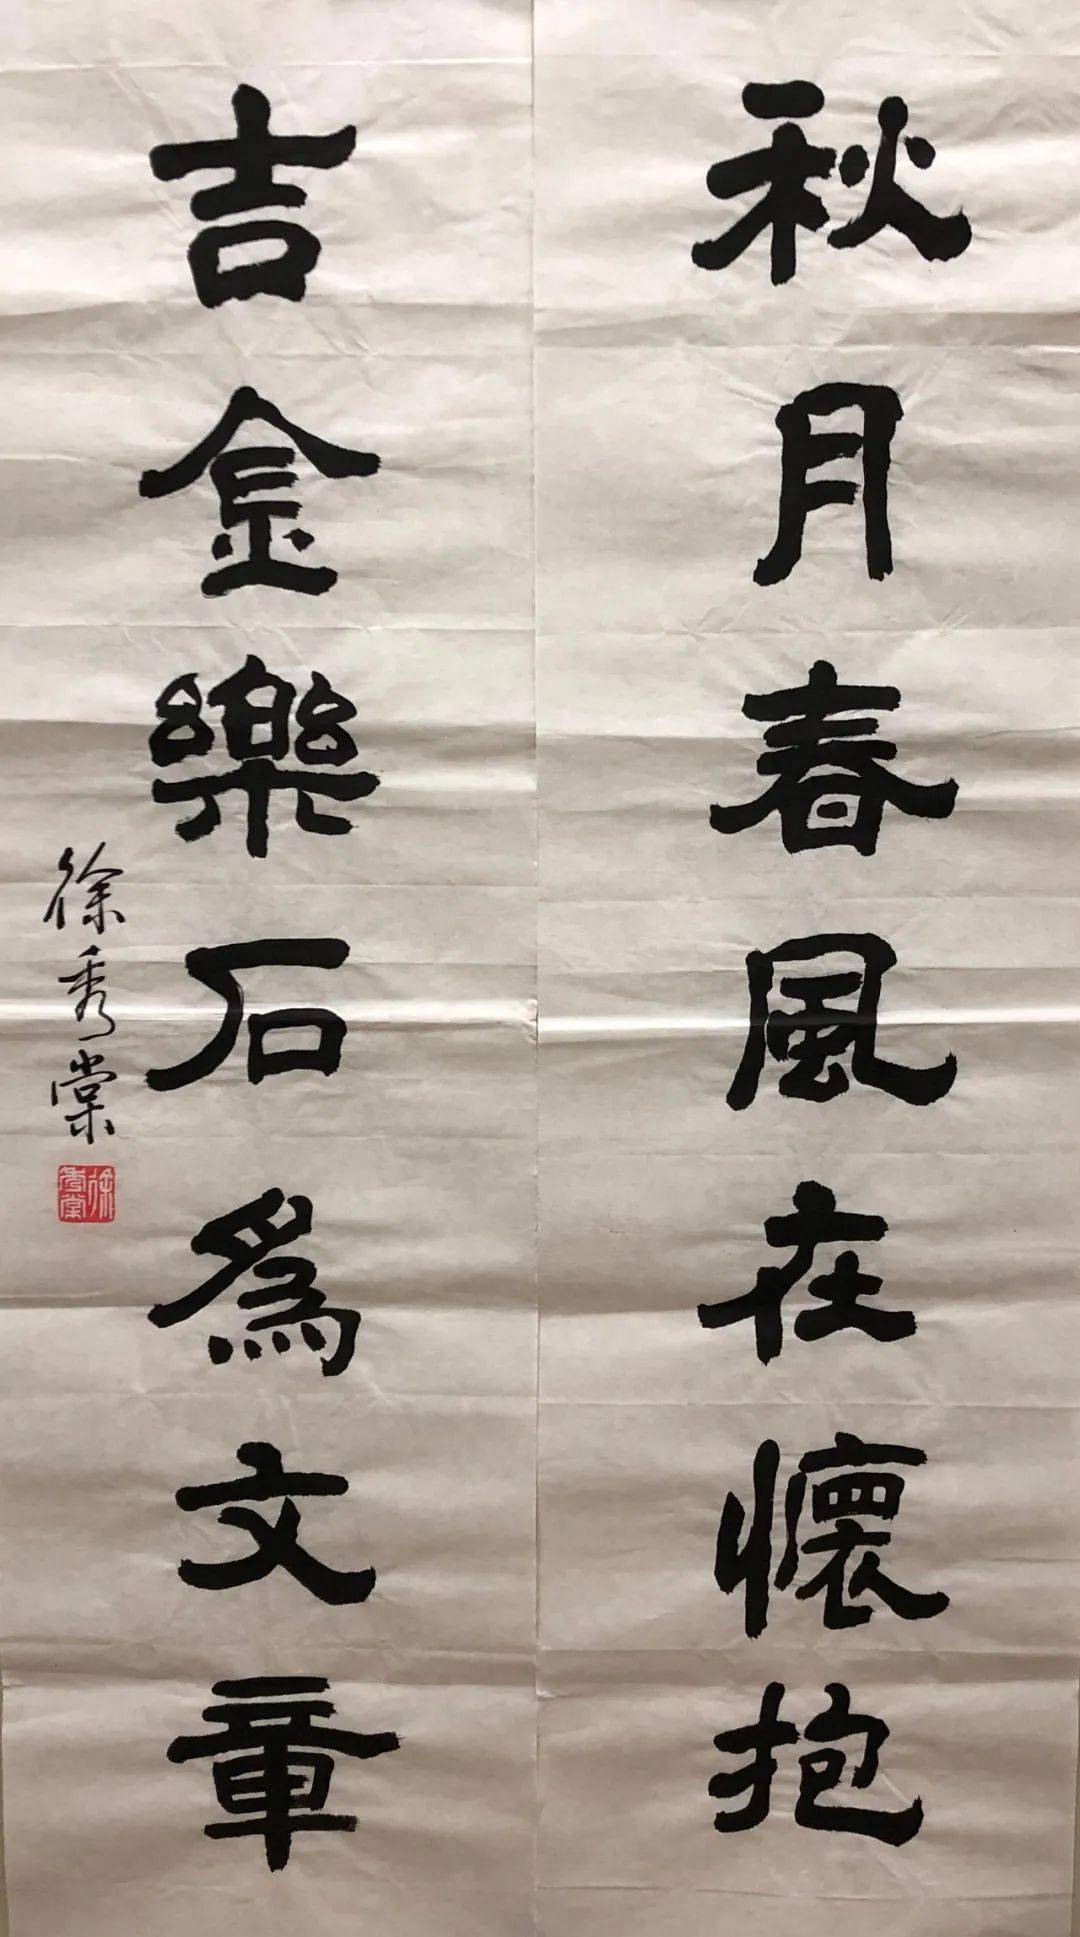 秋月春風在懷抱
吉金樂石為文章
徐秀棠
徐秀棠